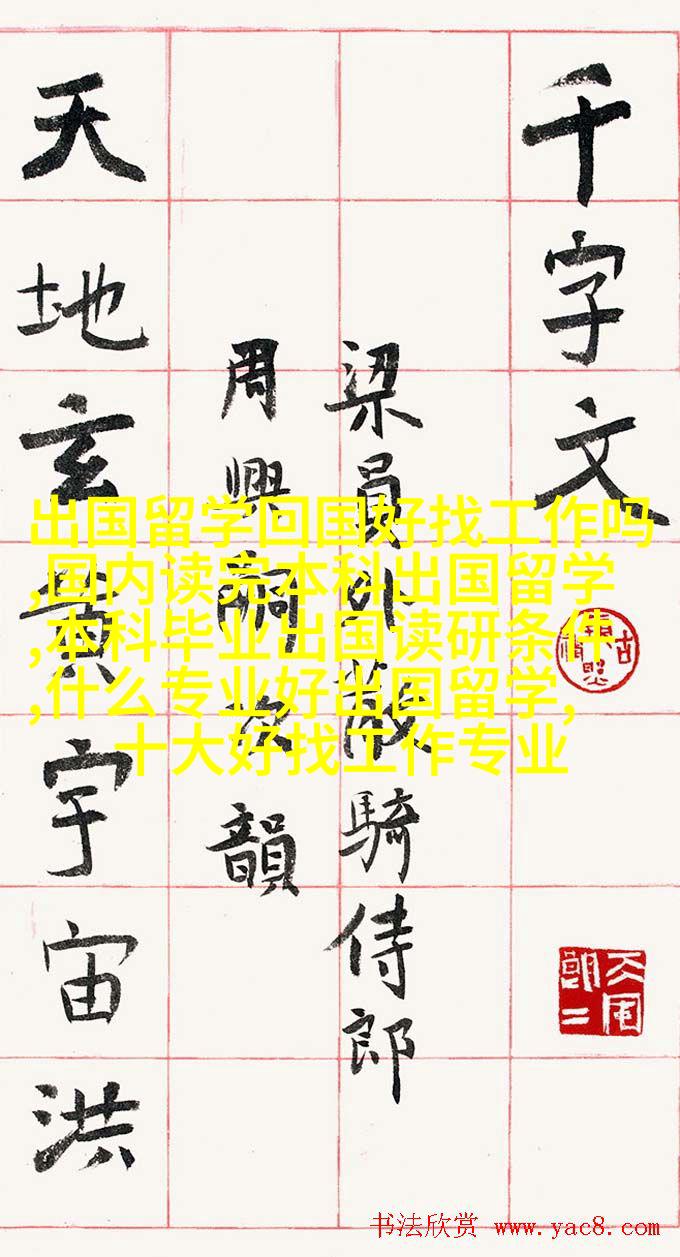 千字文
梁員外散騎侍郎
周興嗣次韻
天地玄黄宇宙洪
出国留学回国好找工作吗
,国内读完本科出国留学
,本科毕业出国读研条件
,什么专业好出国留学,
十大好找工作专业
书法欣赏 www.yac8.com